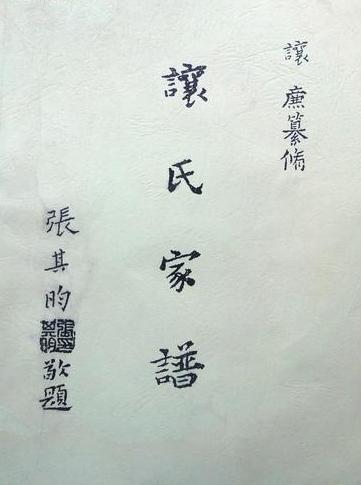 讓廉纂脩
讓氏家譜
張其昀敬題